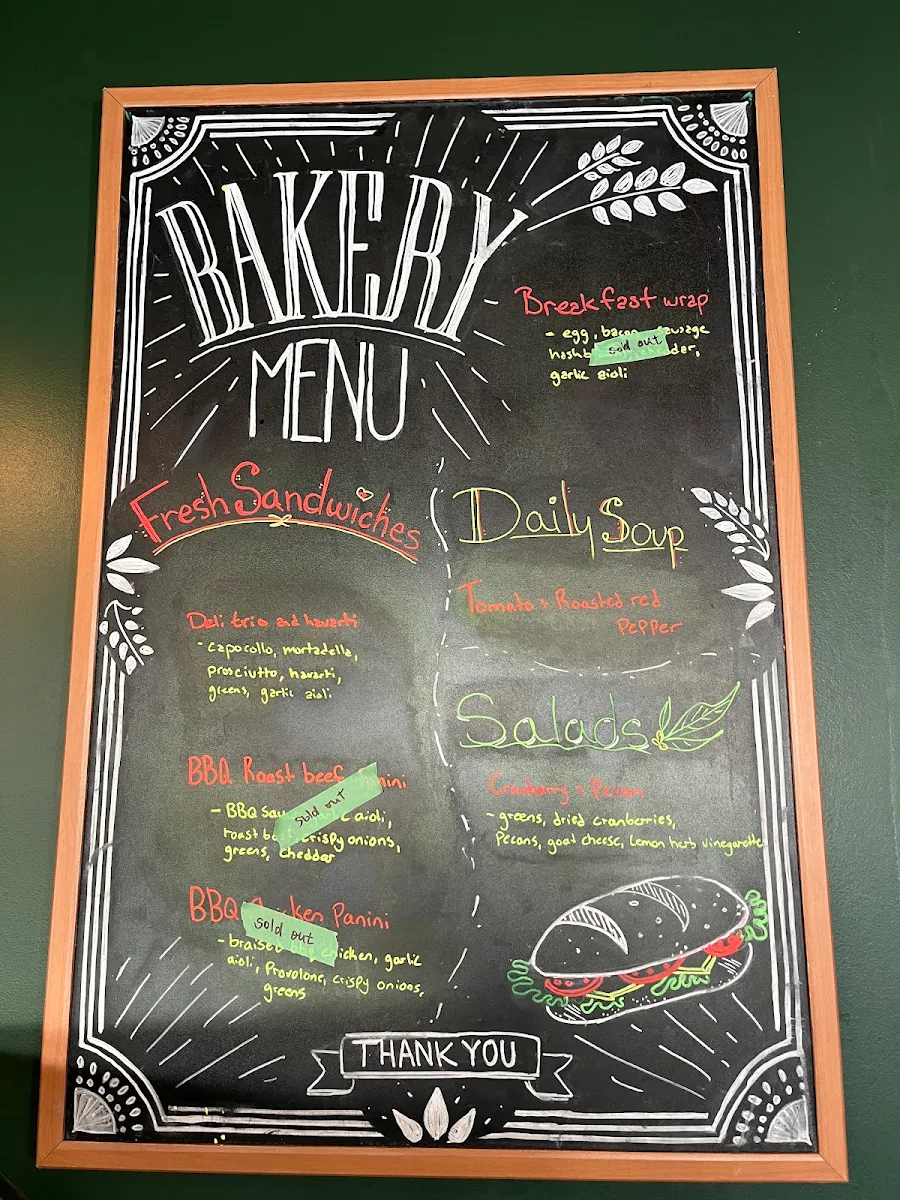 BAKERY
MENU
Breakfast wrap
- egg, bacon, sausage
garlic aioli
sold out
Fresh Sandwiches
Deli trio and havarti
- capocollo, mortadella,
prosciutto, havarti,
greens, garlic aioli
BBQ Roast beef
sold out
- BBQ aioli,
roast crispy onions,
greens, cheddar
BBQ Panini
sold out
- braised chicken, garlic
aioli, Provolone, crispy onions,
greens
Daily Soup
Tomato + Roasted red
PePPer
Salads
Cranberry + Pecan
- greens, dried cranberries,
Pecans, goad cheese, Lemon herb vinegarette
THANK YOU